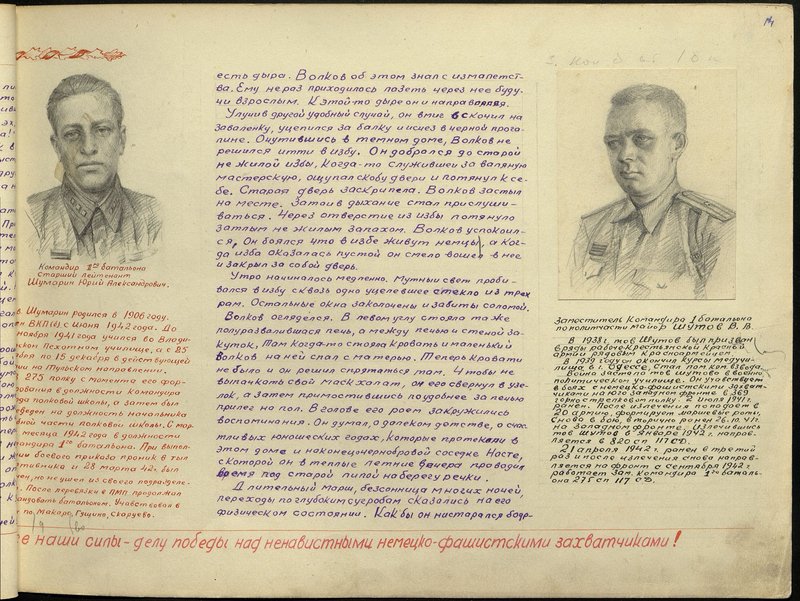 Командир 1го батальона
Старший лейтенант
Шумарин Юрий Александрович.
Шумарин родился в 1906 году.
ВКП(б) с июня 1942 года. До
ноября 1941 года учился во Влади-
Пехотном училище, а с 25
по 15 декабря в действующей
на Тульском направлении.
275 полку с момента его фор-
в должности командира
полковой школы, а затем был
на должность начальника
части полковой школы. С мар
месяца 1942 года в должности
1го батальона. При выпол-
боевого приказа проник в тыл
и 28 марта 42г. был
но не ушел из своего подразделе-
После перевязки в ПМП продолжал
батальоном. Участвовал в
Макаре, Гущино, Скардево.
есть дыра. Волков об этом знал с измалетст-
ва. Ему не раз приходилось лазеть через нее буду-
чи взрослым. К этой-то дыре он и направился.
Улучив другой удобный случай, он вмиг вскочил на
заваленку, уцепился за балку и исчез в черной прога-
лине. Очутившись в темном доме, Волков не
решился итти в избу. Он добрался до старой
не жилой избы, когда-то служившей за валяную
мастерскую, ощупал скобу двери и потянул к се-
бе. Старая дверь заскрипела. Волков застыл
на месте. Затаив дыхание стал прислуши-
ваться. Через отверстие из избы потянуло
затлым не жилым запахом. Волков успокоил-
ся, Он боялся что в избе живут немцы, а ког-
да изба оказалась пустой он смело вошел в нее
и закрыл за собой дверь.
Утро начиналось медленно. Мутный свет проби-
вался в избу сквозь одно уцелевшее стекло из трех
рам. Остальные окна заколочены и забиты соломой.
Волков огляделся. В левом углу стояла та же
полуразвалившаяся печь, а между печью и стеной за-
куток, Там когда-то стояла кровать и маленький
Волков на ней спал с матерью. Теперь кровати
не было и он решил спрятаться там. Чтобы не
выпачкать свой маскхалат, он его свернул в узе-
лок, а затем примостившись поудобнее за печью
прилег на пол. В голове его роем закружились
воспоминания. Он думал, о далеком детстве, о счас
тливых юношеских годах, которые протекали в
этом доме и наконец о чернобровой соседке Насте,
с которой он в теплые летние вечера проводил
время под старой липой на берегу речки.
Длительный марш, бессонница многих ночей,
переходы по глубоким сугробам сказались на его
физическом состоянии. Как бы он ни старался бодр-
Заместитель Командира 1 батальона
по политчасти майор Шутов В. В.
В 1938 г. тов Шутов был призван
в ряды рабоче-Крестьянской Красной
армии рядовым Красноармейцем
В 1939 году окончил курсы медучи-
лища в г. Одессе. Стал пом ком взвода.
Война застала тов шутова в военно-
политическом училище. Он участвует
в боях с немецко-фашистскими захват-
чиками на юго западном фронте в 369
горно стрелковом полку. 2 июля 1941г.
ранен. После излечения попадает в
20 армию, формирует маршевые роты,
Снова в бой, вторично ранен 26. IV. 41г.
на западном фронте. Излечившись
тов Шутов 3 января 1942 г. направ-
ляется в 820 сп 117 СД.
21 апреля 1942 г. ранен в третий
раз и после излечения снова направ-
ляется на фронт с Сентября 1942 г
работает зам. Командира 1го баталь-
она 275 сп 117 СД.
наши силы – делу победы над ненавистными немецко-фашистскими захватчиками!